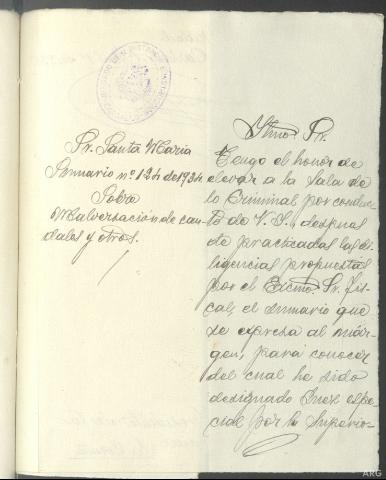 Pr. Santa Maria
Sumario nº 124 de 1934
Sobre
Malversación de cau-
dales y otros.
Iltmo. Sr.
Tengo el honor de
elevar a la Sala de
lo Criminal por conduc-
to de V. S., despues
de practicadas las di-
ligencias propuestas
por el Excmo. Sr. Fis-
cal, el sumario que
se expresa al már-
gen, para conocer
del cual he sido
designado Juez espe-
cial por la Superio-
ARG